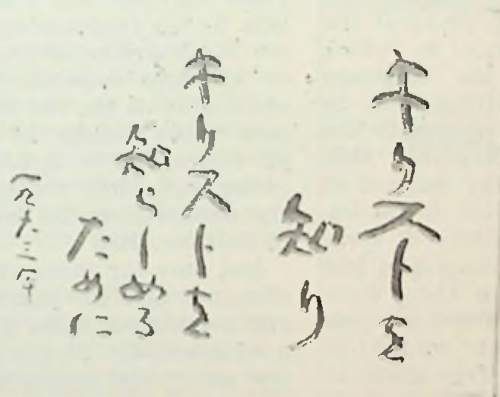 キリストを
知り
キリストを
知らしめる
ために
一九六三年